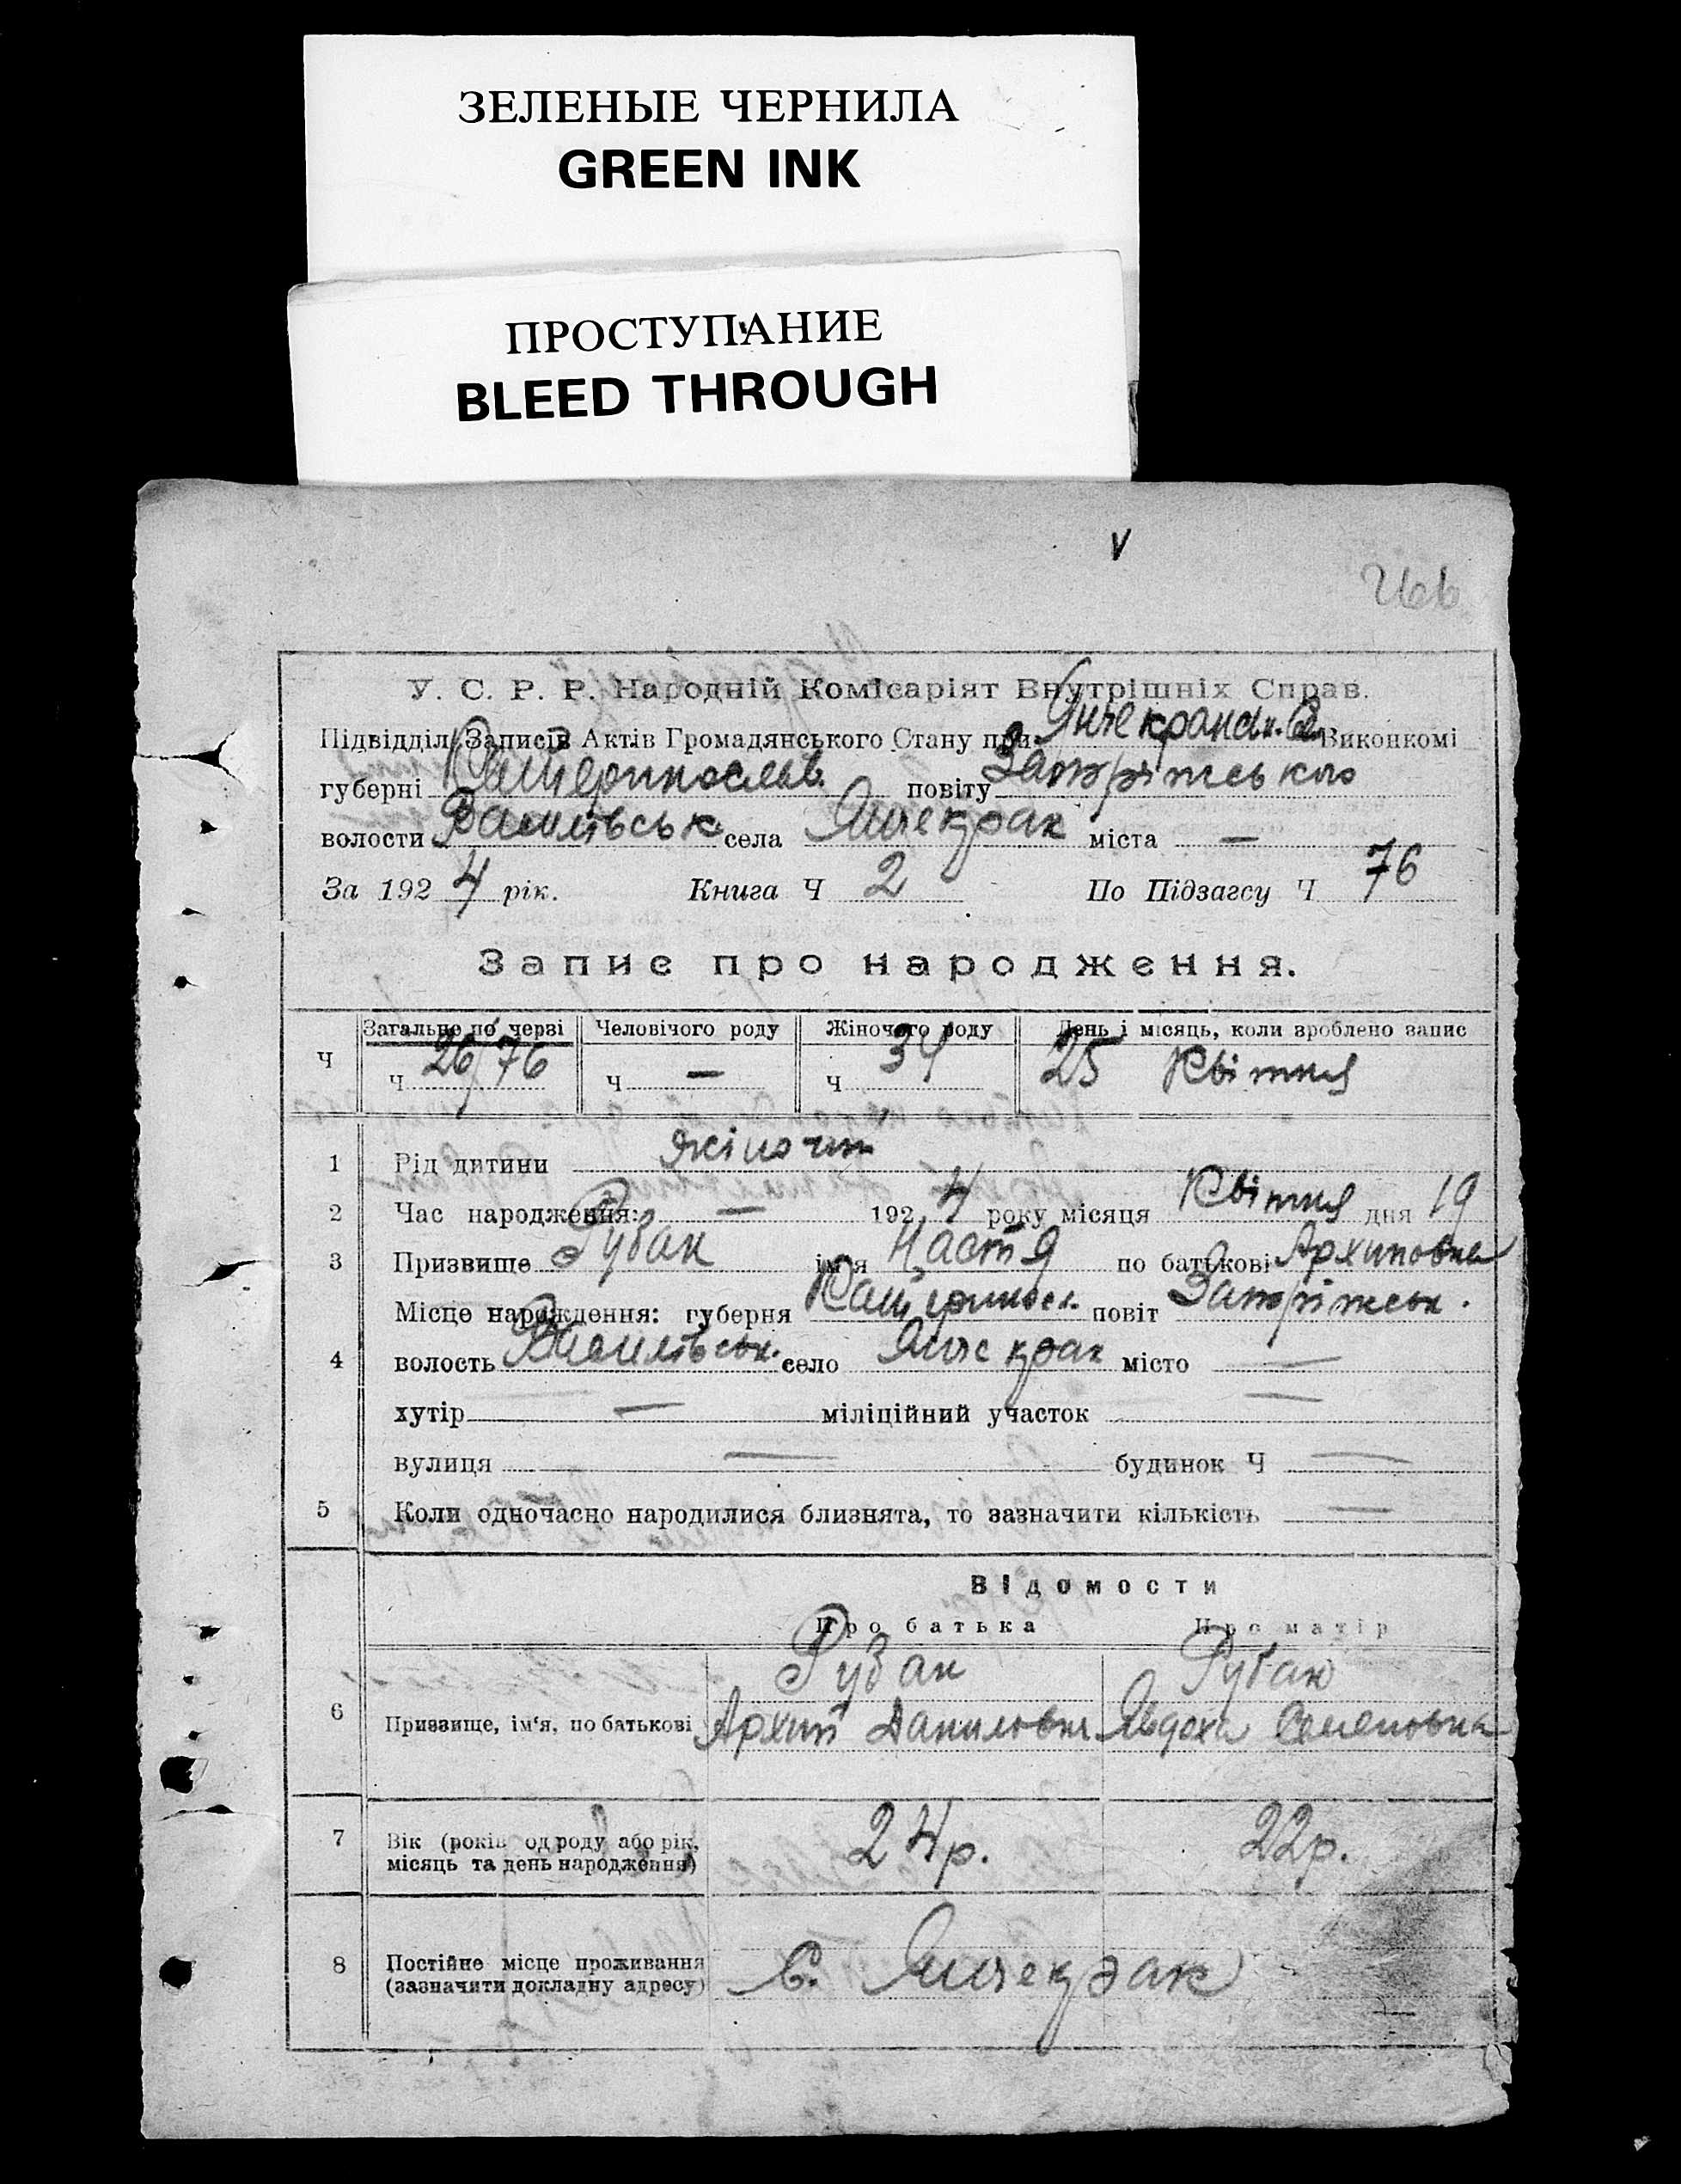 ЗЕЛЕНЫЕ ЧЕРНИЛА
GREEN INK
ПРОСТУПАНИЕ
BLEED THROUGH
V
У. С. Р. Р. Народній Комісаріят Внутрішніх Справ.
Підвідділ Записів Актів Громадянського Стану при Виконкомі
губерні Катеринослав. повіту Запорізського
волости Василівськ села Янчекрак міста —
За 1924 рік. Книга Ч 2 По Підзагсу Ч 76
Запис про народження.
Загальне по черзі Человічого роду Жіночого роду День і місяць, коли зроблено запис
Ч Ч 26/76 Ч — Ч 34 25 Квітня
1 Рід дитини жіноча
2 Час народження: — 1924 року місяця Квітня дня 19
3 Призвище Рубан ім'я Настя по батькові Архиповна
Місце народження: губерня Катеринос. повіт Запорізськ.
4 волость Василівськ. село Янчекрак місто —
хутір — міліційний участок —
вулиця — будинок Ч —
5 Коли одночасно народилися близнята, то зазначити кількість —
Відомости
Про батька Про матір
Рубан Рубан
6 Призвище, ім'я, по батькові Архип Данилович Явдоха Семеновна
7 Вік (років од роду або рік, місяць та день народження) 24 р. 22 р.
8 Постійне місце проживання (зазначити докладну адресу) С. Янчекрак